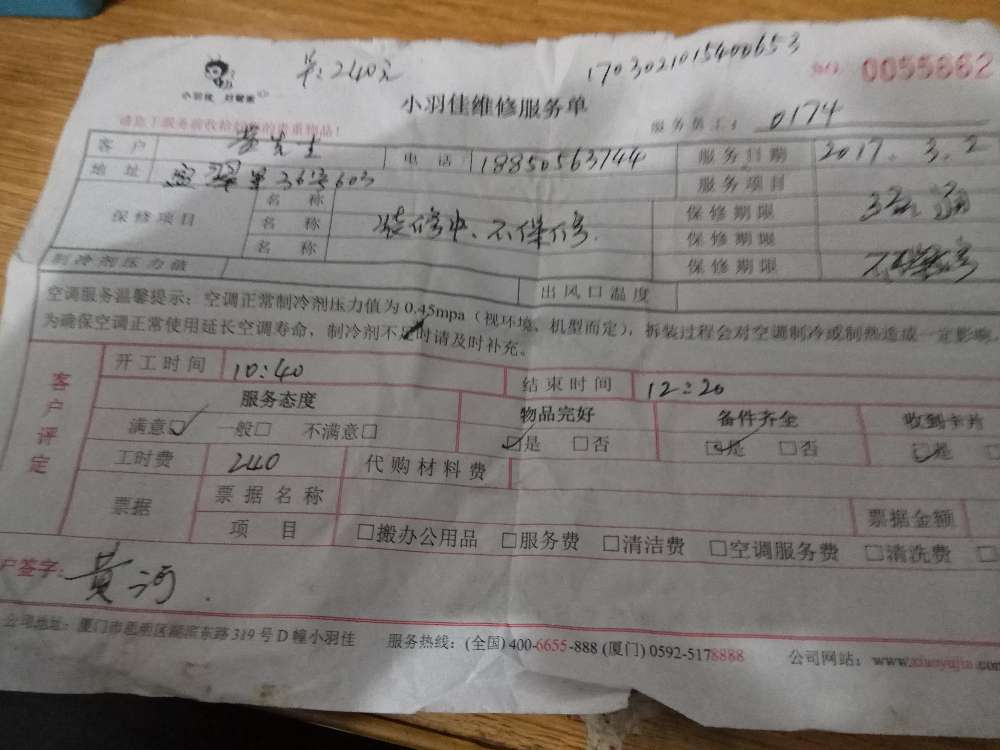 单:240元 1703021015400653
小羽佳 好管家 No 0055862
小羽佳维修服务单
请您于服务前收拾好您的贵重物品! 服务员工: 0174
客户 黄先生 电话 18850563744 服务日期 2017.3.2
地址 36号603 服务项目 疏通
保修项目 名称 装修中、不保修 保修期限
名称 保修期限
名称 保修期限 不保修
制冷剂压力值 出风口温度
空调服务温馨提示:空调正常制冷剂压力值为0.45mpa(视环境、机型而定),拆装过程会对空调制冷或制热造成一定影响,
为确保空调正常使用延长空调寿命,制冷剂不足时请及时补充。
客户评定 开工时间 10:40 结束时间 12:20
服务态度 物品完好 备件齐全 收到卡片
满意☑ 一般□ 不满意□ ☑是 □否 ☑是 □否 ☑是
工时费 240 代购材料费
票据 票据名称 票据金额
项目 □搬办公用品 □服务费 □清洁费 □空调服务费 □清洗费 □
户签字: 黄河
公司地址:厦门市思明区湖滨东路319号D幢小羽佳 服务热线:(全国)400-6655-888 (厦门)0592-5178888 公司网站:www.xiaoyujia.com